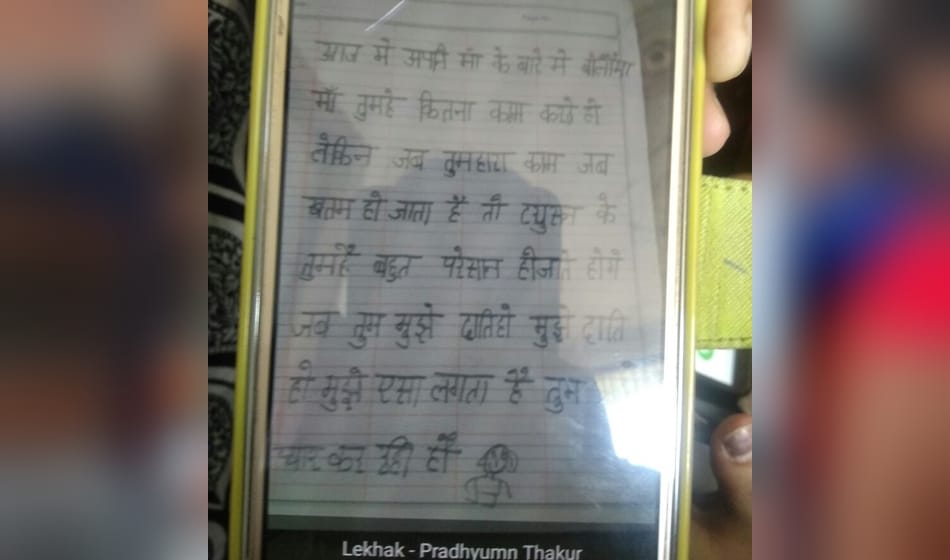 आज मे अपनी मां के बारे मे बोलूँगा
माँ तुमहे कितना काम करते हो
लेकिन जब तुमहारा काम जब
खतम हो जाता है तो के
तुमहै बहुत परेसान होजाते होगे
जब तुम मुझे दातिहो मुझे दाति
हो मुझे एसा लगता है तुम
प्यार कर रही हो
Lekhak - Pradhyumn Thakur